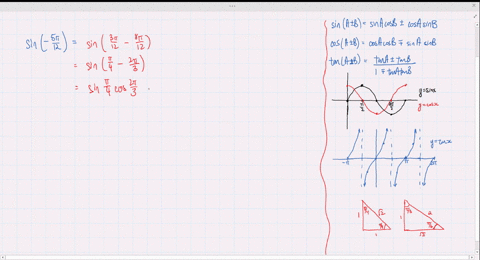 sin(-5π/12) = sin(3π/12 - 8π/12)
= sin(π/4 - 2π/3)
= sin π/4 cos 2π/3
sin(A±B) = sinAcosB ± cosAsinB
cos(A±B) = cosAcosB ∓ sinAsinB
tan(A±B) = (tanA ± tanB)/(1 ∓ tanAtanB)
y=sinx
y=cosx
π/2
y=tanx
-π π 2π
π/4 √2 π/3 2
1 1
π/4 π/6
1 √3